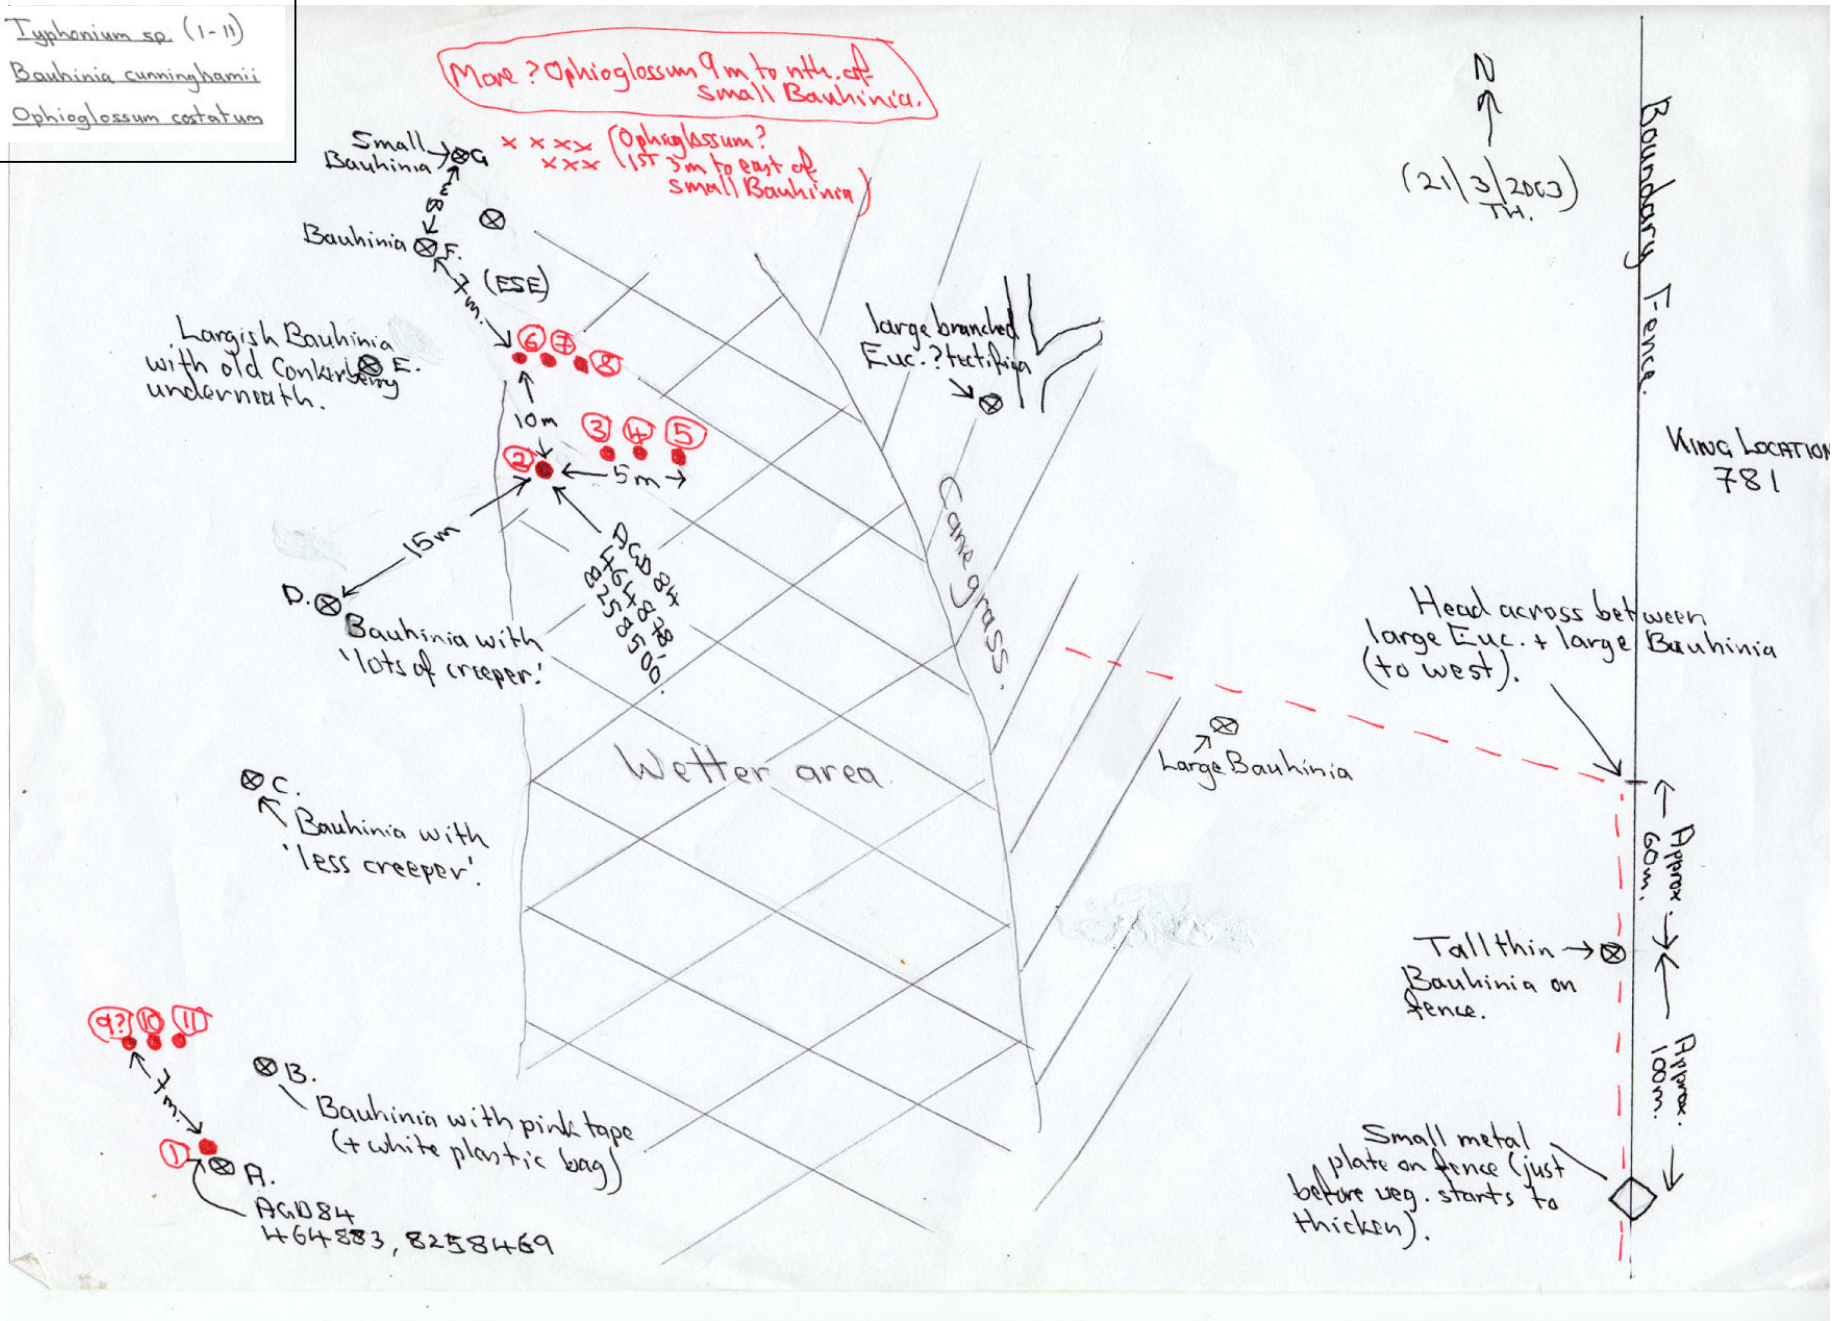 Typhonium sp. (1-11)
Bauhinia cunninghamii
Ophioglossum costatum
More ? Ophioglossum 9m to nth. of
small Bauhinia.
Small
Bauhinia
G
x x x x (Ophioglossum?
x x x (1st 3m to east of
small Bauhinia)
8m
Bauhinia
F.
(ESE)
7m.
N
(21/3/2003)
TH.
Boundary Fence.
KING LOCATION
781
Largish Bauhinia
with old Conkerberry
underneath.
E.
6 7 8
10m
3 4 5
2
5m
large branched
Euc. ? tectifica
15m
AGD 84
464878,
8258500.
Cane grass.
D.
Bauhinia with
'lots of creeper.'
Head across between
large Euc. + large Bauhinia
(to west).
Wetter area.
Large Bauhinia
C.
Bauhinia with
'less creeper'.
Approx.
60m.
Tall thin
Bauhinia on
fence.
Approx.
100m.
9? 10 11
7m.
B.
Bauhinia with pink tape
(+ white plastic bag)
1
A.
AGD84
464883, 8258469
Small metal
plate on fence (just
before veg. starts to
thicken).